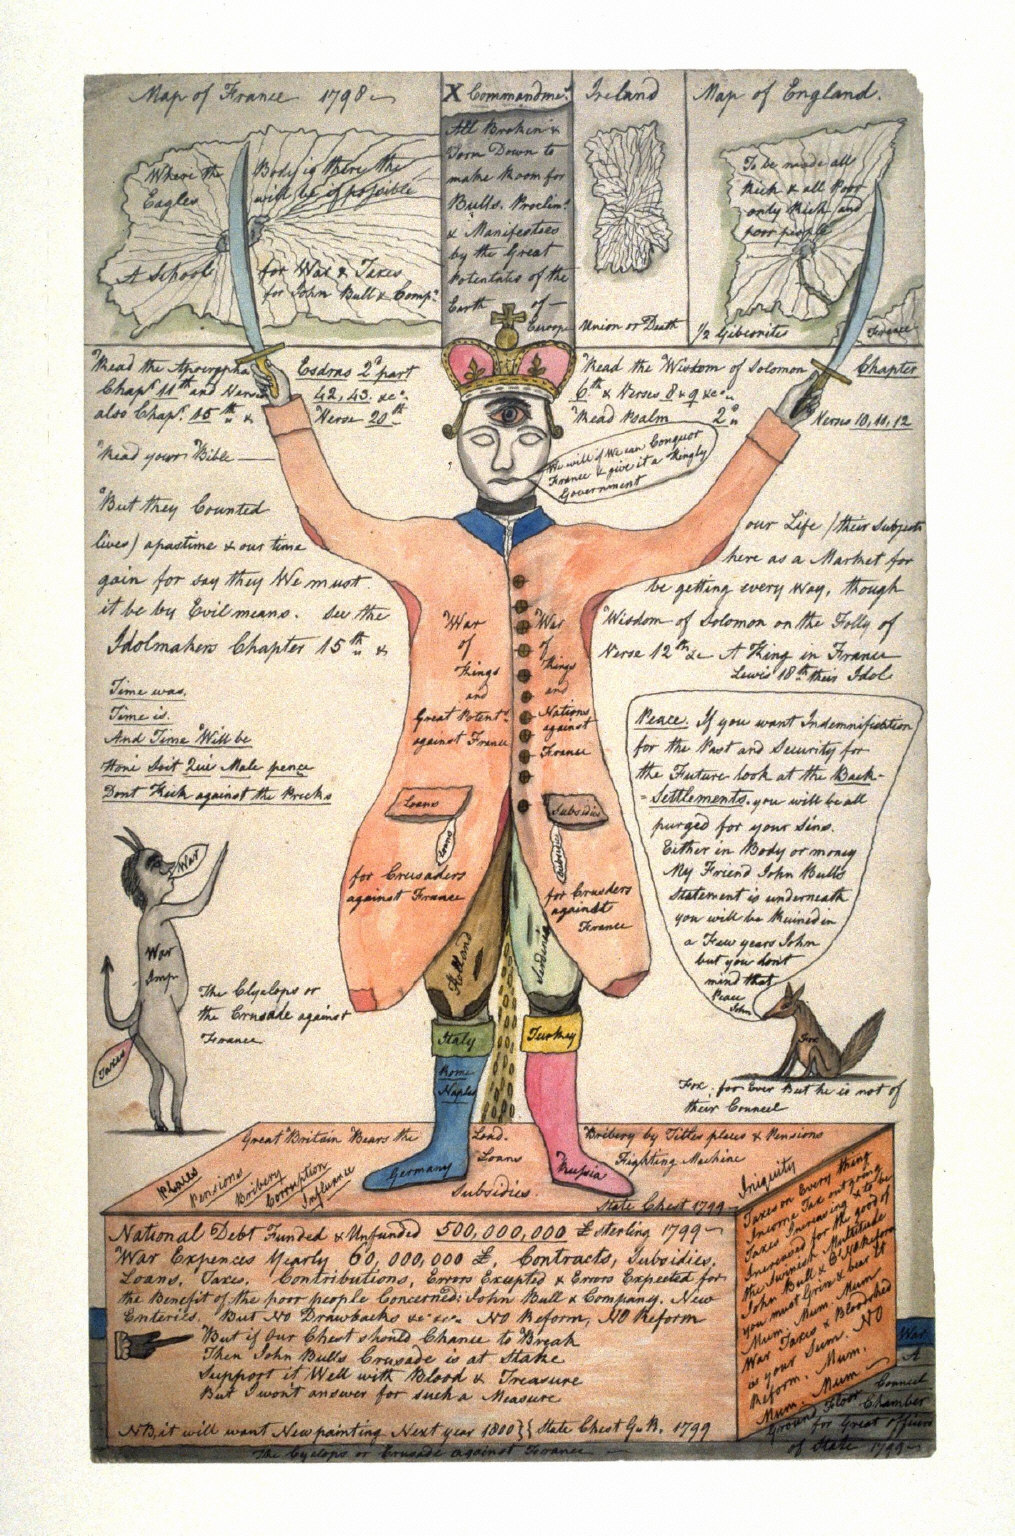 Map of France 1798
Where the Body is there the
Eagles will be if possible
A School for War & Taxes
for John Bull & Comp.y
X Commandme.ts
All Broken &
Torn Down to
make Room for
Bulls. Proclm.s
& Manifestoes
by the Great
Potentates of the
Earth of
Europe
Ireland
Union or Death
Map of England.
To be made all
Rich & all Poor
only Rich and
poor people
1/2 Gibeonites
France
Read the Apocrypha Esdras 2.d part
Chap.r 11th and Verses 42, 43. &c
also Chap.r 15th & Verse 20th
Read your Bible
Read the Wisdom of Solomon Chapter
6th & Verses 8 & 9 &c
Read Psalm 2.d Verses 10, 11, 12
We will if We can Conquor
France & give it a Kingly
Government
But they Counted our Life (their Subjects
lives) apastime & our time here as a Market for
gain for say they We must be getting every way, though
it be by Evil means. See the Wisdom of Solomon on the Folly of
Idolmakers Chapter 15th & Verse 12th &c A King in France
Lewis 18th their Idol
Time was,
Time is.
And Time Will be
Honi Soit Qui Male pence
Dont Kick against the Pricks
War
of
Kings
and
Great Potent.s
against France
War
of
Kings
and
Nations
against
France
Loans
Loans
for Crusaders
against France
Subsidies
Subsidies
for Crusders
against
France
Peace. If you want Indemnification
for the Past and Security for
the Future look at the Back-
-Settlements. you will be all
purged for your Sins.
Either in Body or money
My Friend John Bulls
Statement is underneath
you will be Ruined in
a Few years John
but you dont
mind that
Peace
John
War
War
Imp
Taxes
The Clyclops or
the Crusade against
France
Holland
Sardinia
Italy
Turkey
Rome
Naples
Germany
Rusia
Fox
Fox: for Ever But he is not of
their Councel
Great Britain Bears the Load.
Loans
Subsidies.
Bribery by Titles places & Pensions
Fighting Machine
Places
Pensions
Bribery
Corruption
Influence
Iniquity
State Chest 1799
National Debt Funded & Unfunded 500,000,000 £ Sterling 1799
War Expences Yearly 60,000,000 £. Contracts, Subsidies,
Loans, Taxes. Contributions, Errors Excepted & Errors Expected for
the Benefit of the poor people Concerned: John Bull & Company. New
Enteries. But No Drawbacks &c &c No Reform, NO Reform
But if Our Chest should Chance to Break
Then John Bulls Crusade is at Stake
Support it Well with Blood & Treasure
But I wont answer for such a Measure
NB, it will want New painting Next year 1800}{State Chest G.R. 1799
Taxes on Every thing
Income Tax out going
Taxes Increasing & to be
Increased for the good of
the Swinish Multitude
John Bull & C.o
you must Grin & bear it
Mum. Mum Mum
War Taxes & Bloodshed
is your Sum. NO
Reform. Mum.
Mum. Mum
War
A
Councel
Ground Floor Chamber
for Great officers
of State 1799
The Cyclops or Crusade against France